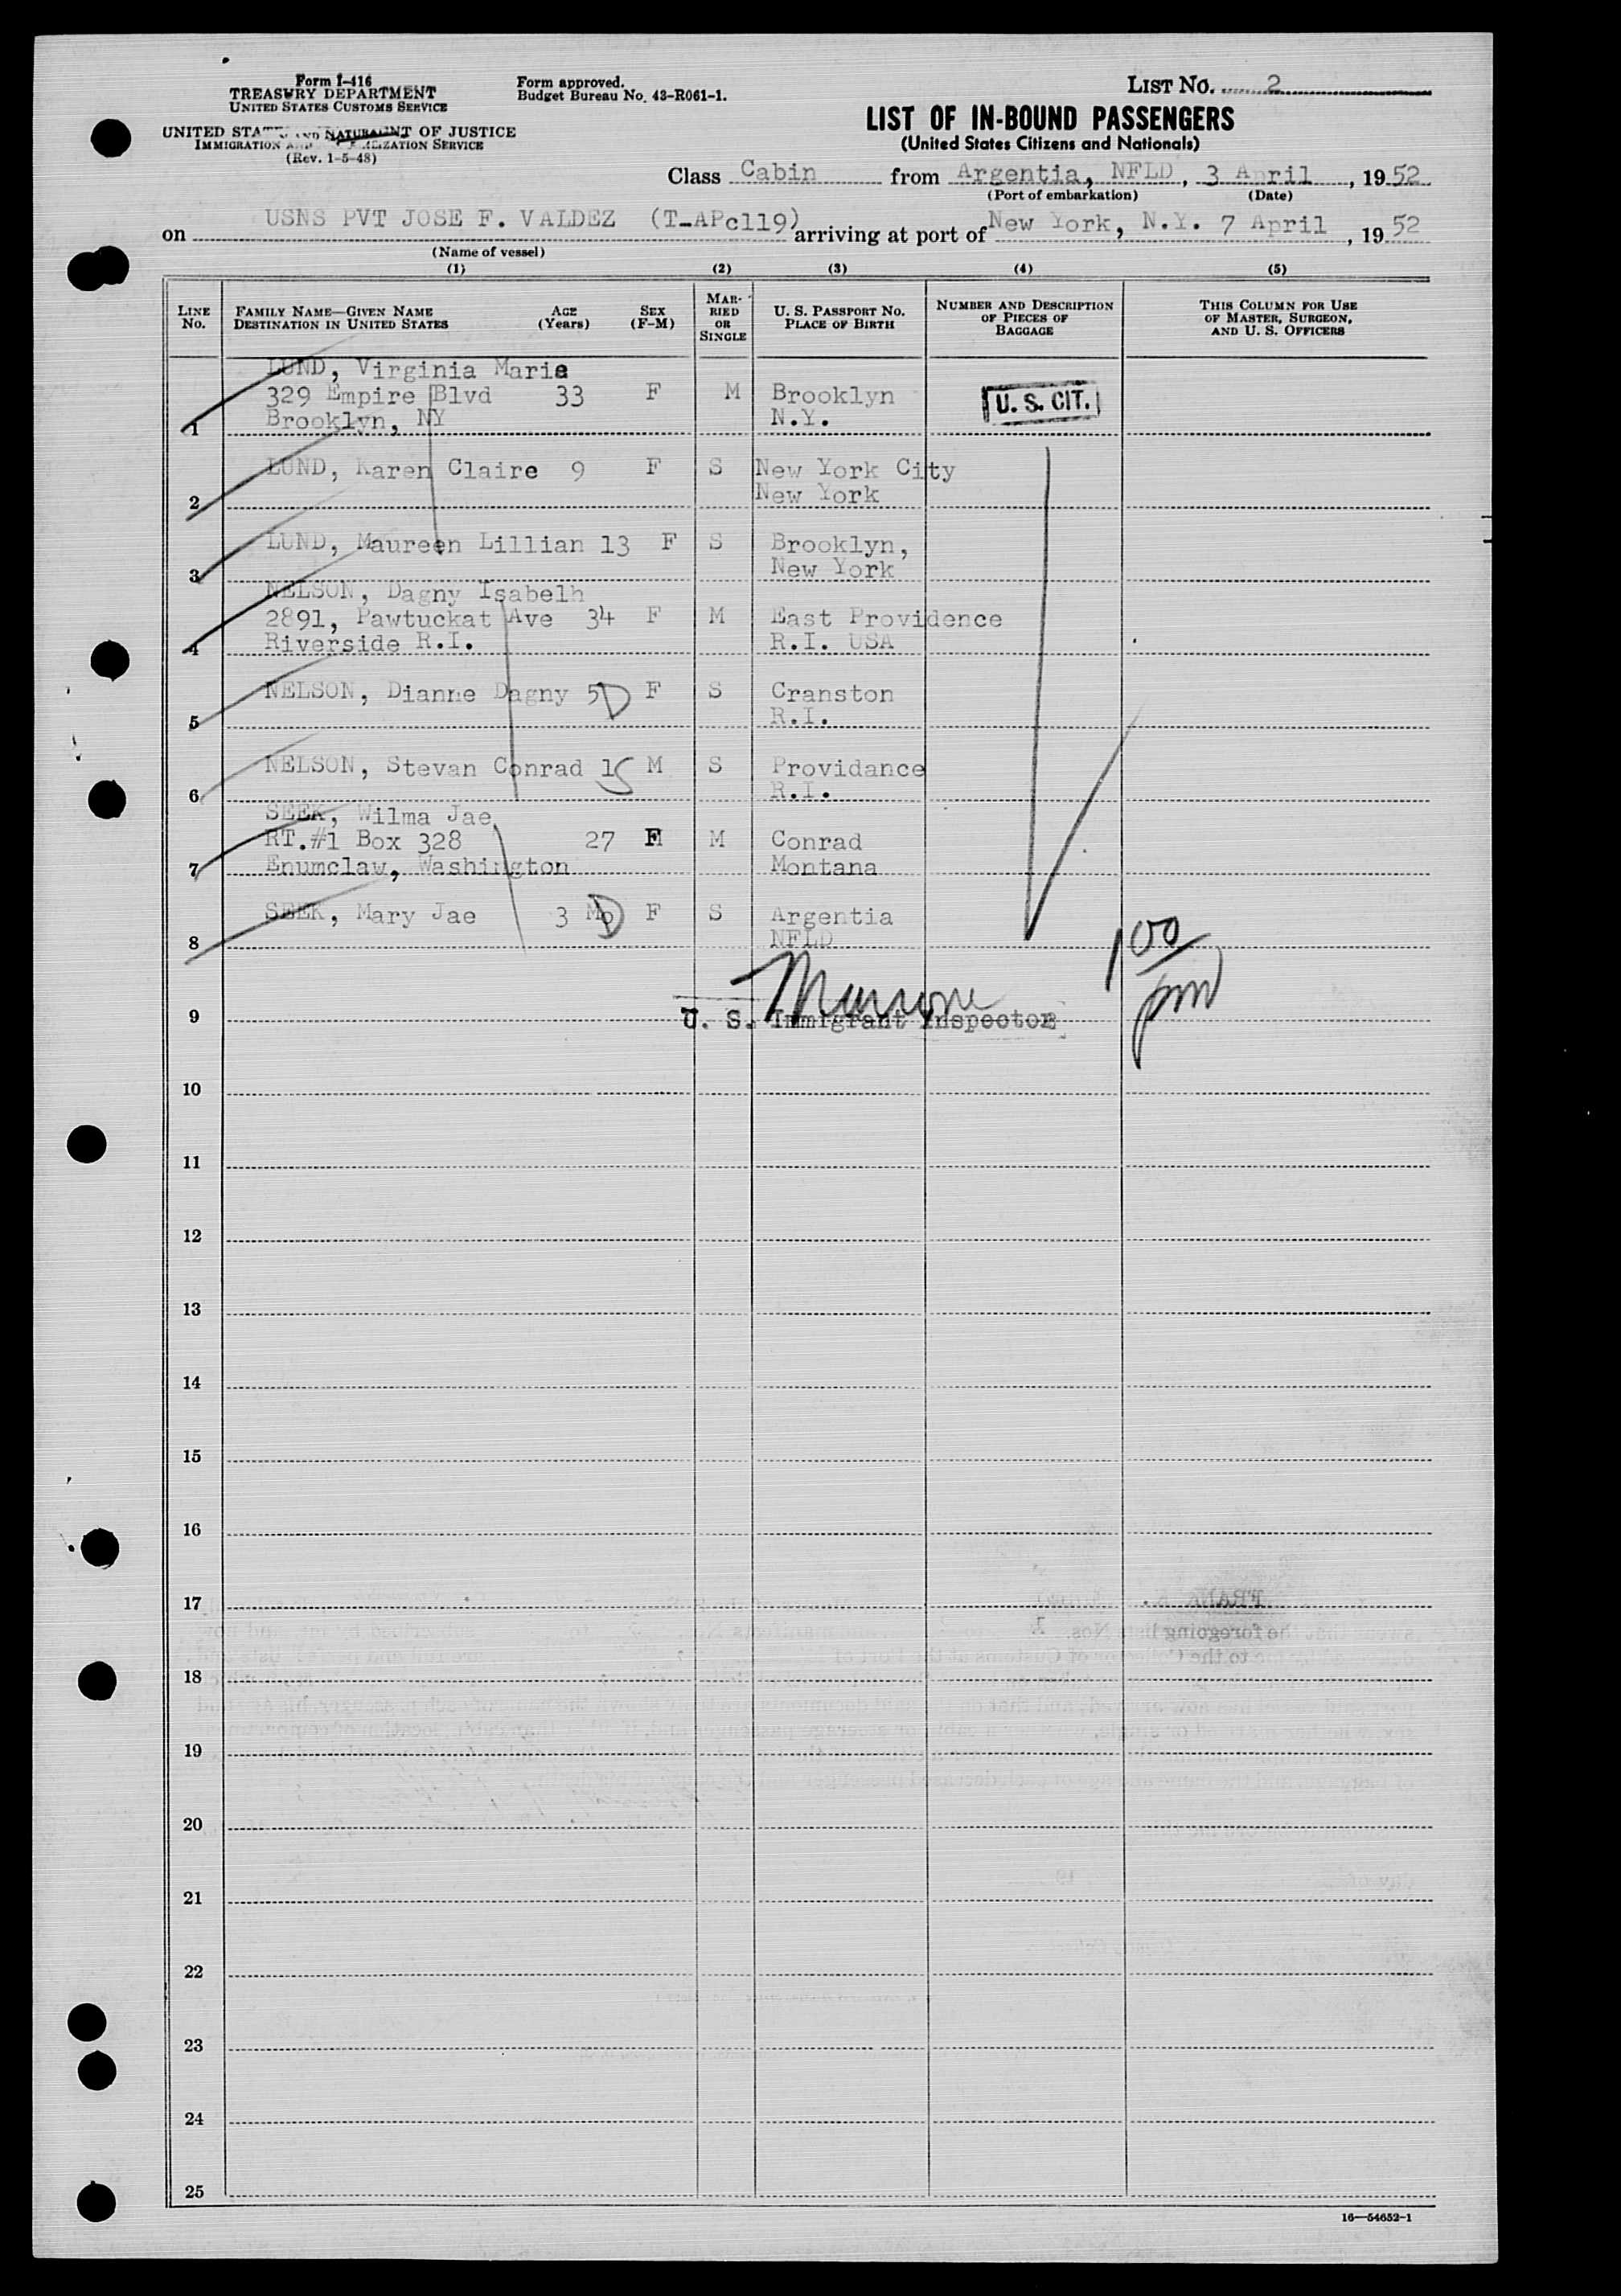 Form I-416
TREASURY DEPARTMENT
UNITED STATES CUSTOMS SERVICE
UNITED STA NT OF JUSTICE
IMMIGRATION AND NATURALIZATION SERVICE
(Rev. 1-5-48)
Form approved.
Budget Bureau No. 43-R061-1.
LIST NO. 2
LIST OF IN-BOUND PASSENGERS
(United States Citizens and Nationals)
Class Cabin from Argentia, NFLD, 3 April, 1952
(Port of embarkation) (Date)
on USNS PVT JOSE F. VALDEZ (T-APc119) arriving at port of New York, N.Y. 7 April, 1952
(Name of vessel)
(1) (2) (3) (4) (5)
LINE No.
FAMILY NAME—GIVEN NAME DESTINATION IN UNITED STATES
AGE (Years)
SEX (F-M)
MARRIED OR SINGLE
U. S. PASSPORT NO. PLACE OF BIRTH
NUMBER AND DESCRIPTION OF PIECES OF BAGGAGE
THIS COLUMN FOR USE OF MASTER, SURGEON, AND U. S. OFFICERS
LUND, Virginia Marie
329 Empire Blvd 33 F M Brooklyn U. S. CIT.
1 Brooklyn, NY N.Y.
LUND, Karen Claire 9 F S New York City
2 New York
LUND, Maureen Lillian 13 F S Brooklyn,
3 New York
NELSON, Dagny Isabelh
2891, Pawtuckat Ave 34 F M East Providence
4 Riverside R.I. R.I. USA
NELSON, Dianne Dagny 5 D F S Cranston
5 R.I.
NELSON, Stevan Conrad 1 S M S Providance
6 R.I.
SEEK, Wilma Jae
RT.#1 Box 328 27 F M Conrad
7 Enumclaw, Washington Montana
SEEK, Mary Jae 3 Mo D F S Argentia
8 NFLD
1 00 pm
9 U. S. Immigrant Inspector
10
11
12
13
14
15
16
17
18
19
20
21
22
23
24
25
16—54652-1